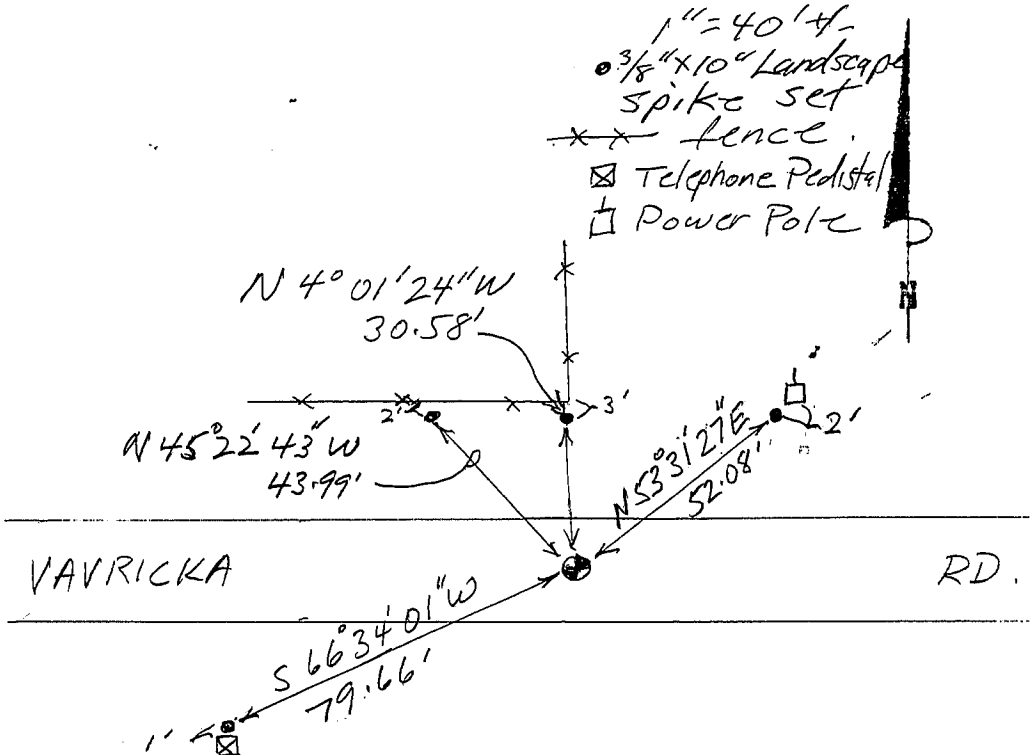 1"=40'+/-
3/8"X10" Landscape
spike set
fence.
Telephone Pedistal
Power Pole
N
N 4° 01' 24" W
30.58'
3'
2'
2'
N 45° 22' 43" W
43.99'
N 53° 31' 27" E
52.08'
VAVRICKA RD.
S 66° 34' 01" W
79.66'
1'